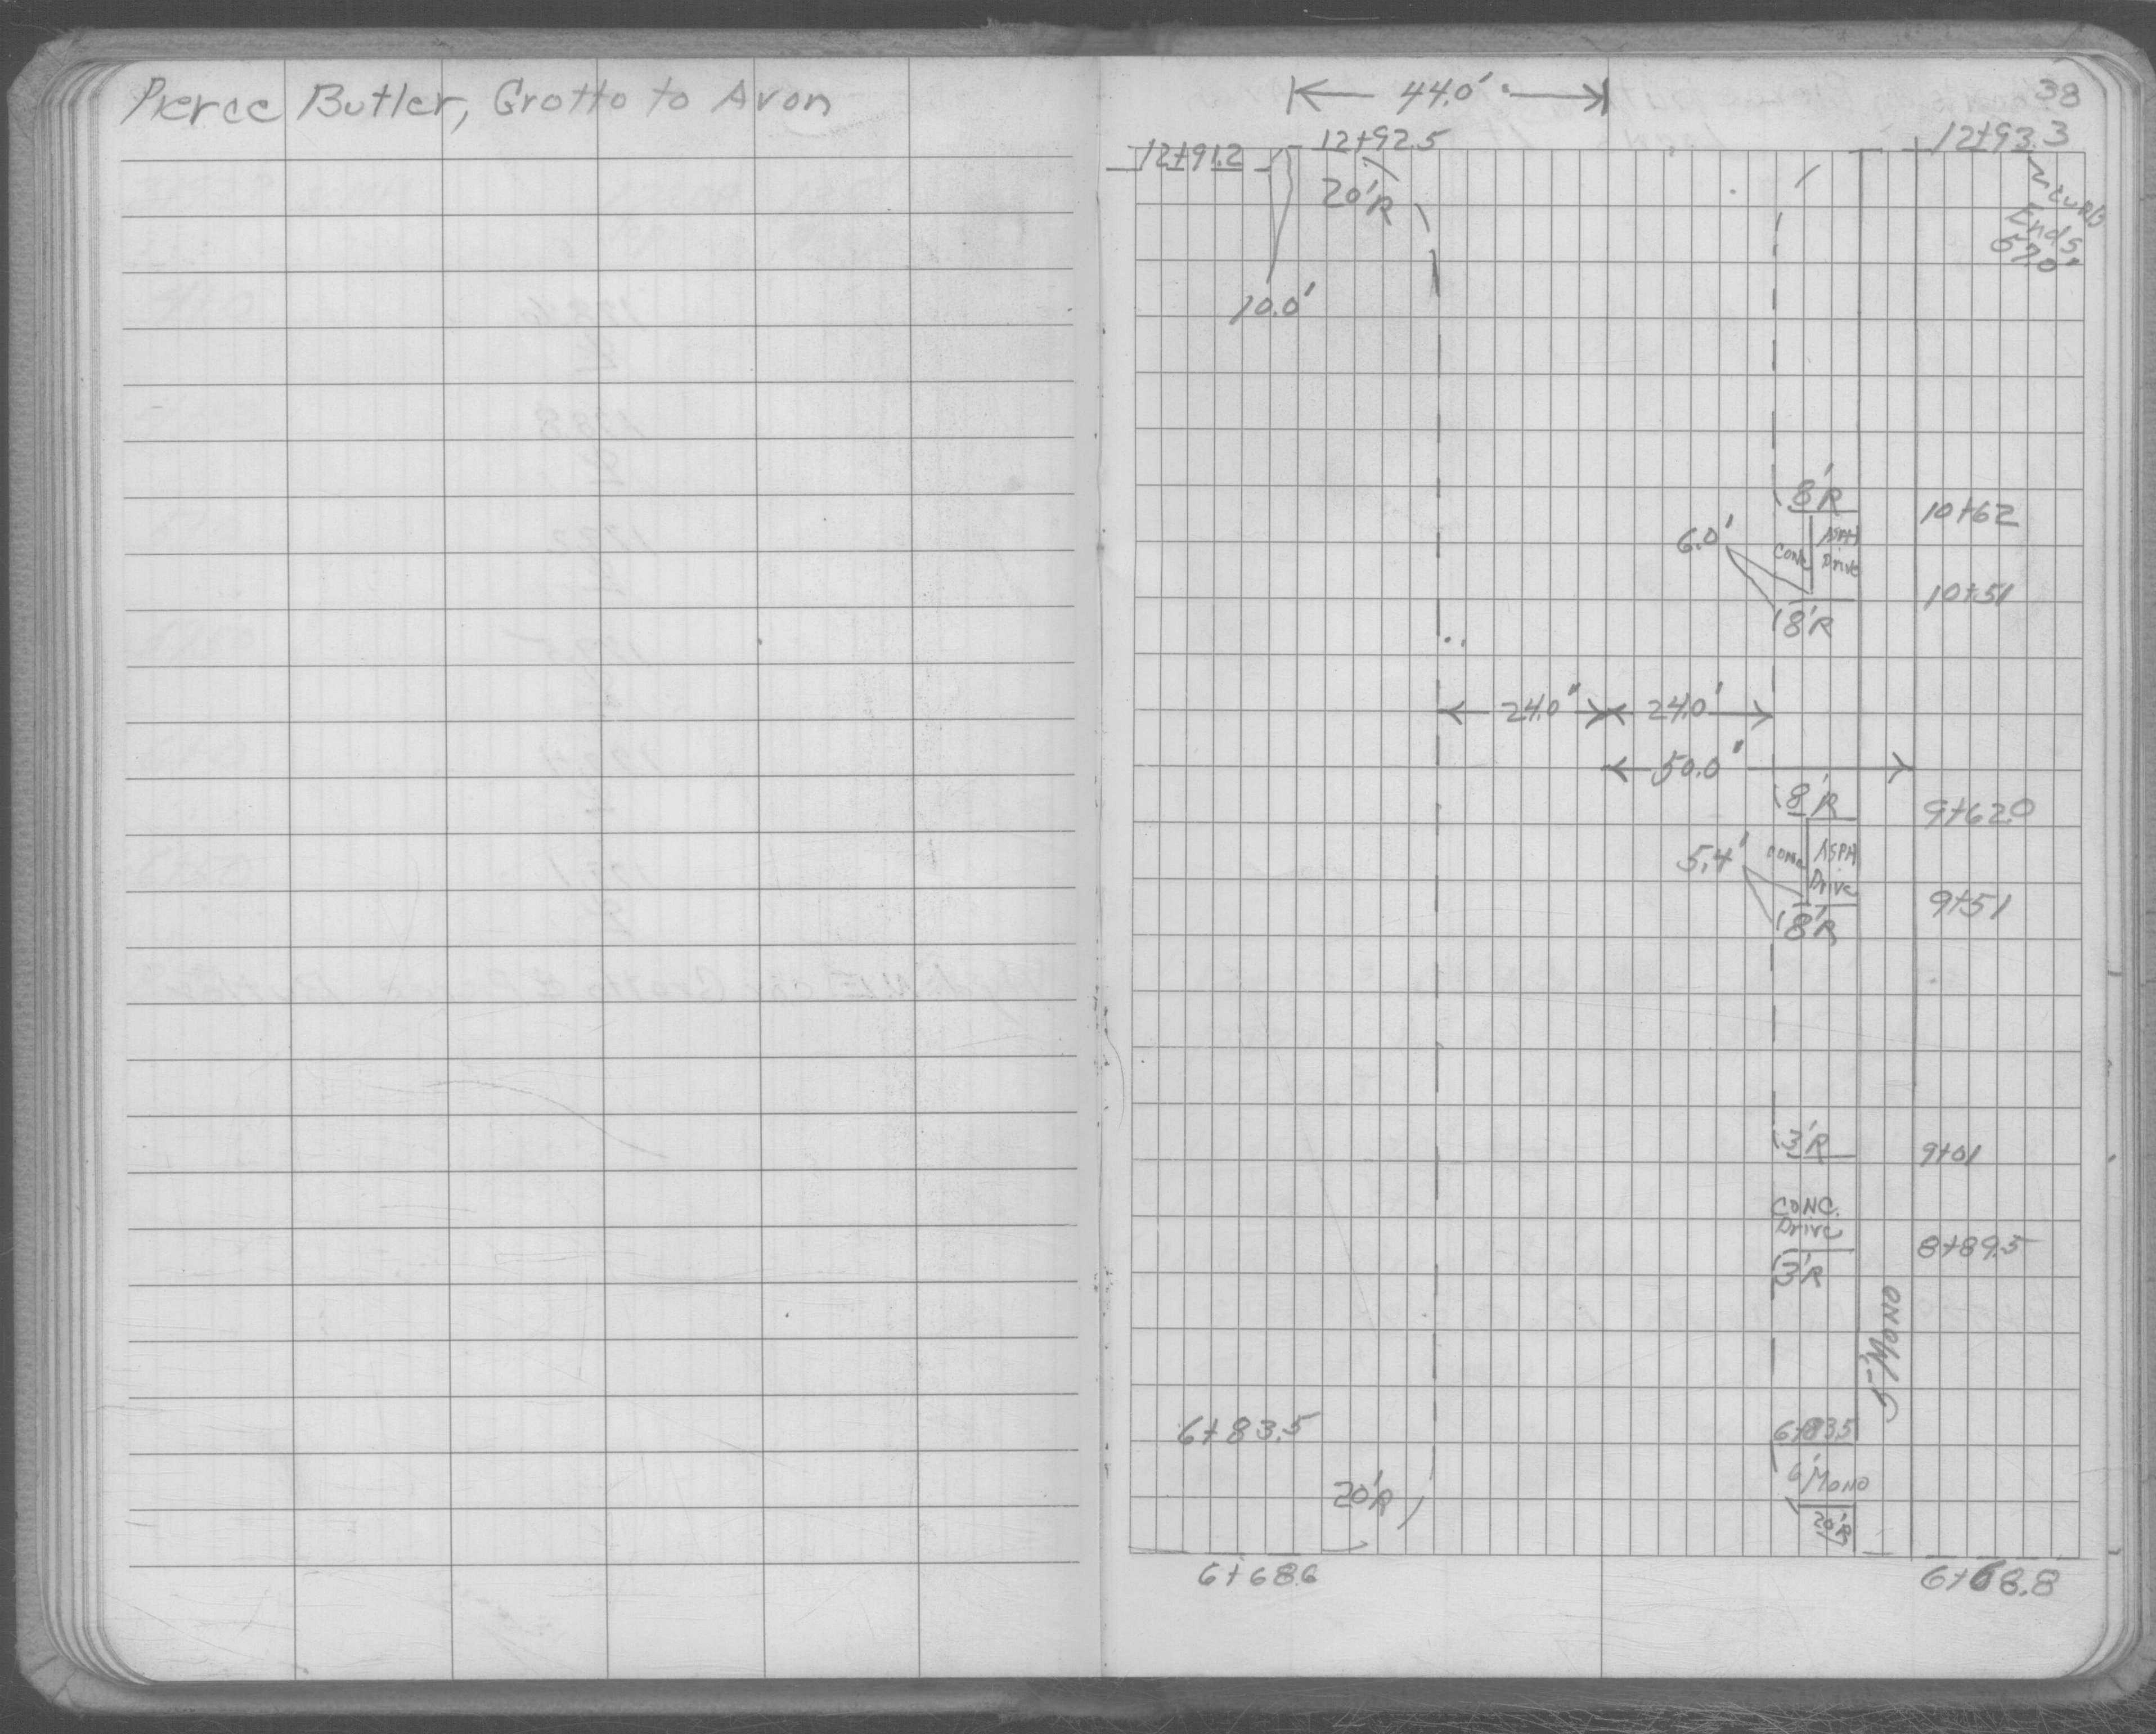 Pierce Butler, Grotto to Avon
38
44.0'
12+91.2
12+92.5
12+93.3
20'R
Curb
Ends
57.0'
10.0'
8'R
10+62
6.0'
Conc
ASPH
Drive
10+51
8'R
24.0'
24.0'
50.0'
8'R
9+62.0
5.4'
Conc
ASPH
Drive
9+51
8'R
3'R
9+01
CONC.
Drive
8+89.5
3'R
5' MONO
6+83.5
6+83.5
6' MONO
20'R
20'R
6+68.6
6+68.8